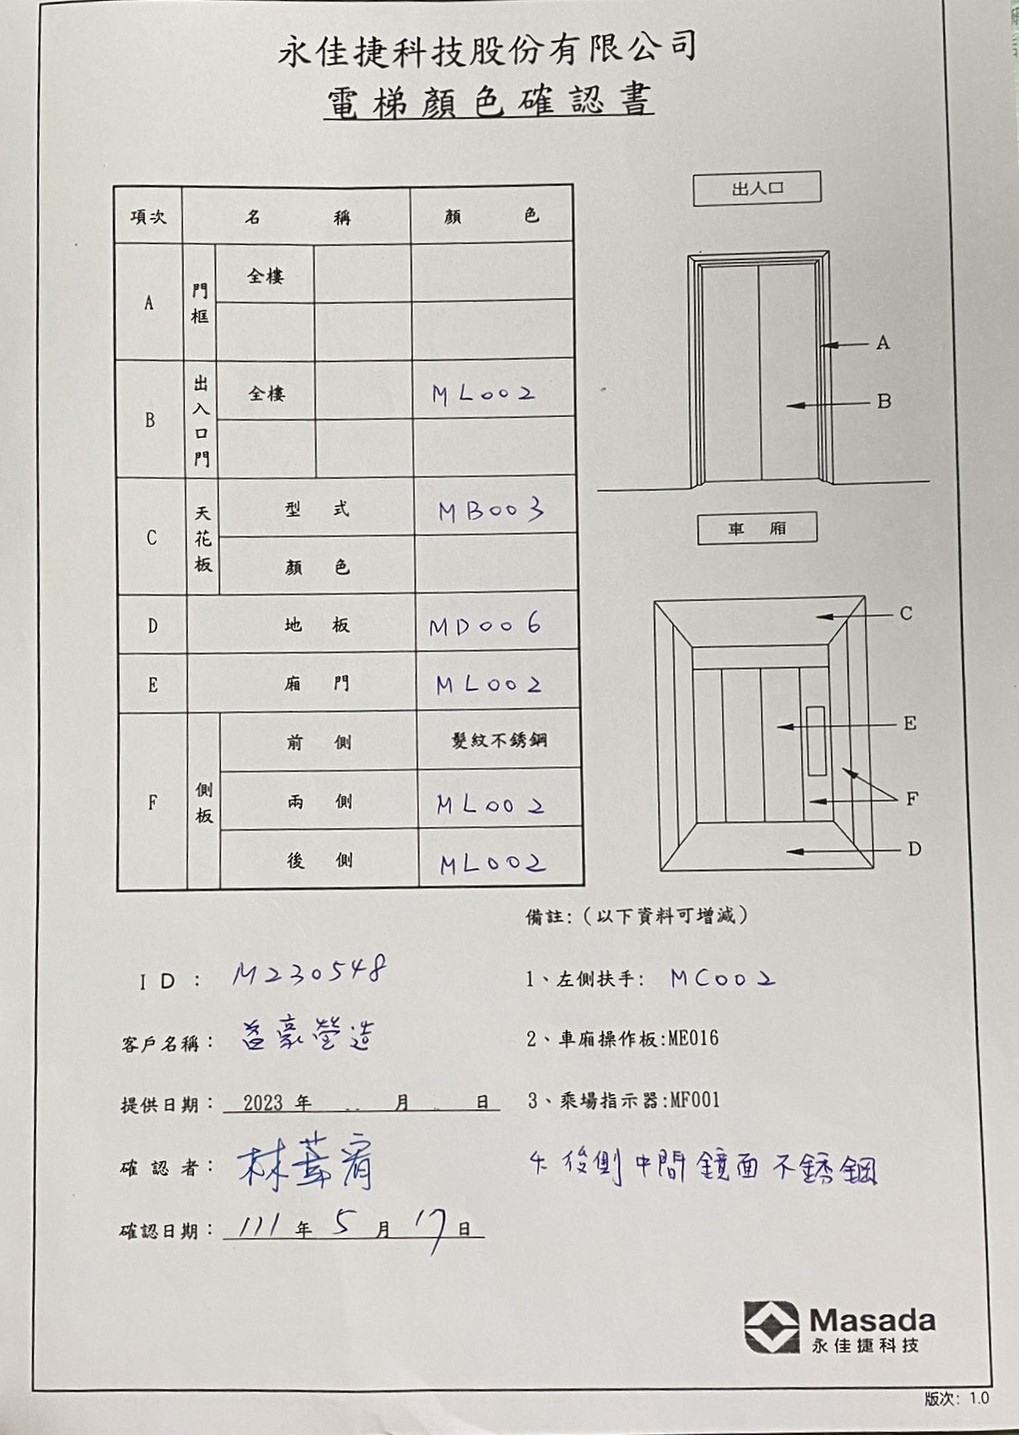 永佳捷科技股份有限公司
電梯顏色確認書
項次 名稱 顏色
A 門框 全樓
B 出入口門 全樓 ML002
C 天花板 型式 MB003
顏色
D 地板 MD006
E 廂門 ML002
F 側板 前側 髮紋不銹鋼
兩側 ML002
後側 ML002
出入口
A
B
車廂
C
E
F
D
備註:(以下資料可增減)
ID: M230548
1、左側扶手: MC002
客戶名稱: 豪營造
2、車廂操作板:ME016
提供日期: 2023 年 月 日
3、乘場指示器:MF001
確認者: 林
4 後側中間鏡面不銹鋼
確認日期: 111 年 5 月 17 日
Masada
永佳捷科技
版次: 1.0